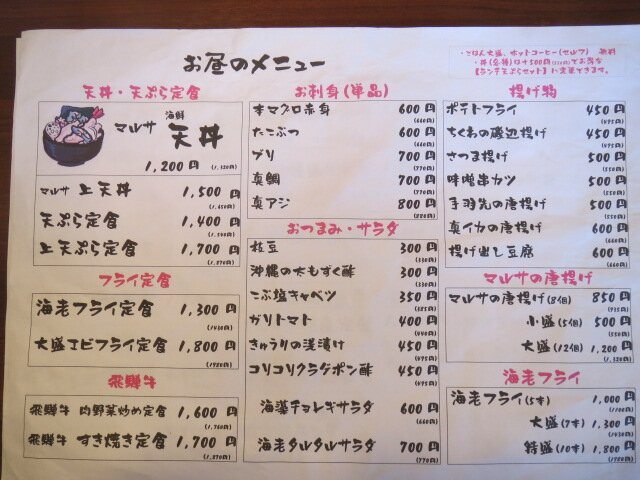 お昼のメニュー
・ごはん大盛、ホットコーヒー(セルフ) 無料
・丼(各種)は+500円(550円)でお得な
【ランチ天ぷらセット】に変更できます。
天丼・天ぷら定食
マルサ 海鮮 天丼
1,200円 (1,320円)
マルサ 上天丼 1,500円
(1,650円)
天ぷら定食 1,400円
(1,540円)
上天ぷら定食 1,700円
(1,870円)
フライ定食
海老フライ定食 1,300円
(1430円)
大盛エビフライ定食 1,800円
(1980円)
飛騨牛
飛騨牛 肉野菜炒め定食 1,600円
(1,760円)
飛騨牛 すき焼き定食 1,700円
(1,870円)
お刺身(単品)
本マグロ赤身 600円
(660円)
たこぶつ 600円
(660円)
ブリ 700円
(770円)
真鯛 700円
(770円)
真アジ 800円
(880円)
おつまみ・サラダ
枝豆 300円
(330円)
沖縄の太もずく酢 300円
(330円)
こぶ塩キャベツ 350円
(385円)
ガリトマト 400円
(440円)
きゅうりの浅漬け 450円
(495円)
コリコリクラゲポン酢 450円
(495円)
海藻チョレギサラダ 600円
(660円)
海老タルタルサラダ 700円
(770円)
揚げ物
ポテトフライ 450円
(495円)
ちくわの磯辺揚げ 450円
(495円)
さつま揚げ 500円
(550円)
味噌串カツ 500円
(550円)
手羽先の唐揚げ 500円
(550円)
真イカの唐揚げ 600円
(660円)
揚げ出し豆腐 600円
(660円)
マルサの唐揚げ
マルサの唐揚げ(8個) 850円
(935円)
小盛(5個) 500円
(550円)
大盛(12個) 1,200円
(1,320円)
海老フライ
海老フライ(5本) 1,000円
(1100円)
大盛(7本) 1,300円
(1430円)
特盛(10本) 1,800円
(1980円)